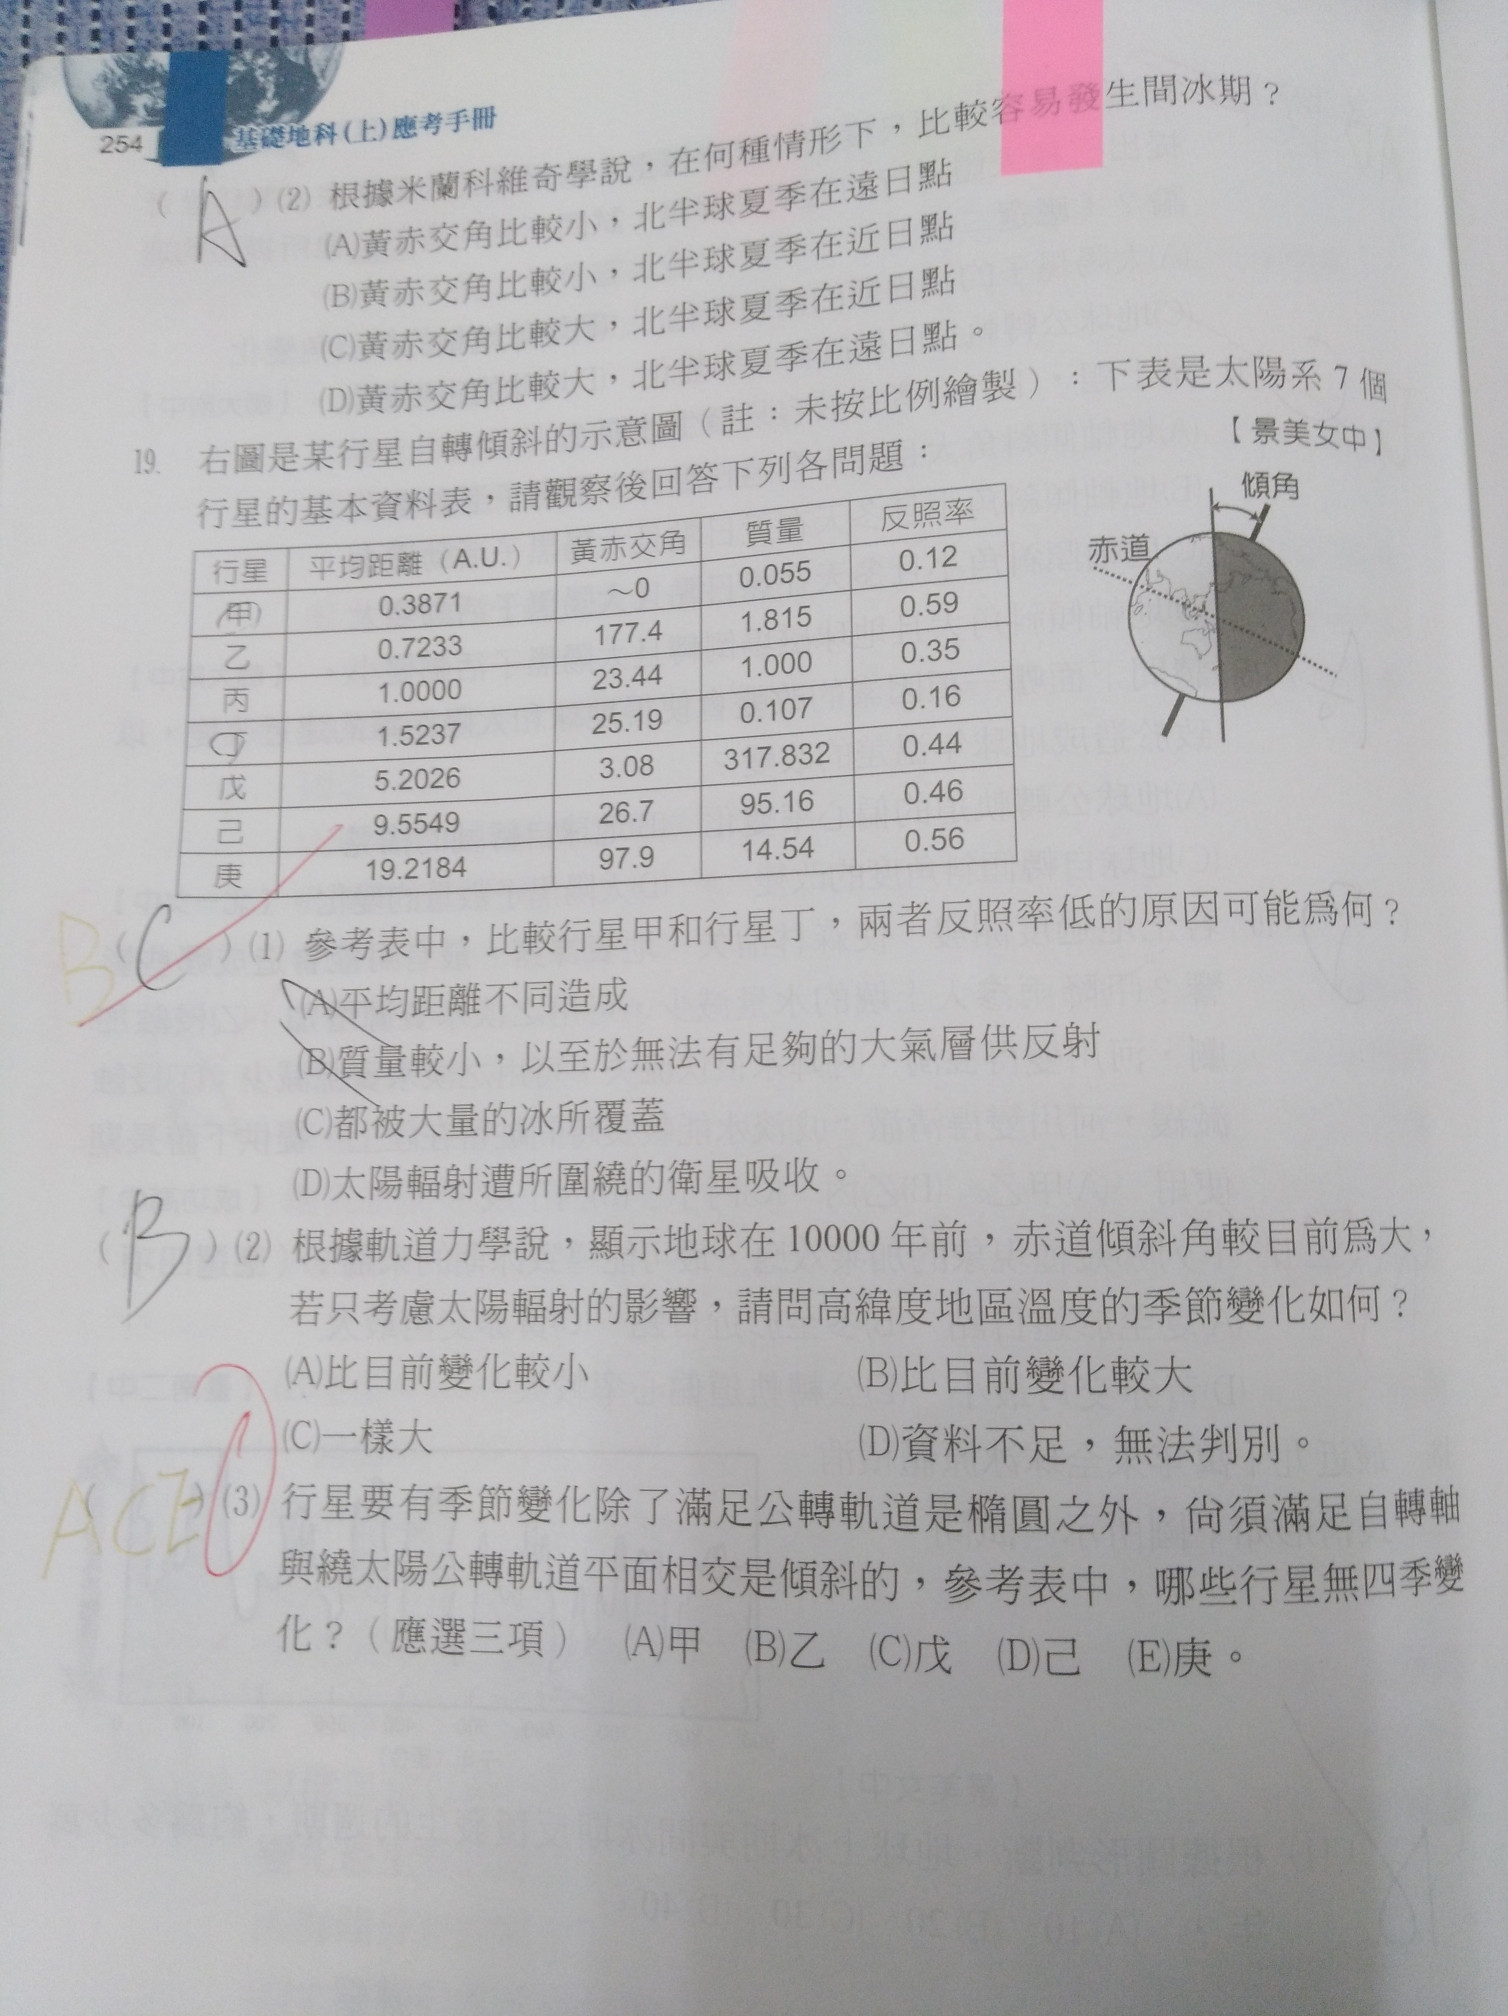 254 基礎地科(上)應考手冊
( A ) (2) 根據米蘭科維奇學說，在何種情形下，比較容易發生間冰期？
(A)黃赤交角比較小，北半球夏季在遠日點
(B)黃赤交角比較小，北半球夏季在近日點
(C)黃赤交角比較大，北半球夏季在近日點
(D)黃赤交角比較大，北半球夏季在遠日點。
【景美女中】
19. 右圖是某行星自轉傾斜的示意圖（註：未按比例繪製）：下表是太陽系 7 個
行星的基本資料表，請觀察後回答下列各問題：
行星 平均距離（A.U.） 黃赤交角 質量 反照率
甲 0.3871 ～0 0.055 0.12
乙 0.7233 177.4 1.815 0.59
丙 1.0000 23.44 1.000 0.35
丁 1.5237 25.19 0.107 0.16
戊 5.2026 3.08 317.832 0.44
己 9.5549 26.7 95.16 0.46
庚 19.2184 97.9 14.54 0.56
傾角
赤道
B ( C ) (1) 參考表中，比較行星甲和行星丁，兩者反照率低的原因可能為何？
(A)平均距離不同造成
(B)質量較小，以至於無法有足夠的大氣層供反射
(C)都被大量的冰所覆蓋
(D)太陽輻射遭所圍繞的衛星吸收。
( B ) (2) 根據軌道力學說，顯示地球在 10000 年前，赤道傾斜角較目前為大，
若只考慮太陽輻射的影響，請問高緯度地區溫度的季節變化如何？
(A)比目前變化較小 (B)比目前變化較大
(C)一樣大 (D)資料不足，無法判別。
( ACE ) (3) 行星要有季節變化除了滿足公轉軌道是橢圓之外，尚須滿足自轉軸
與繞太陽公轉軌道平面相交是傾斜的，參考表中，哪些行星無四季變
化？（應選三項） (A)甲 (B)乙 (C)戊 (D)己 (E)庚。